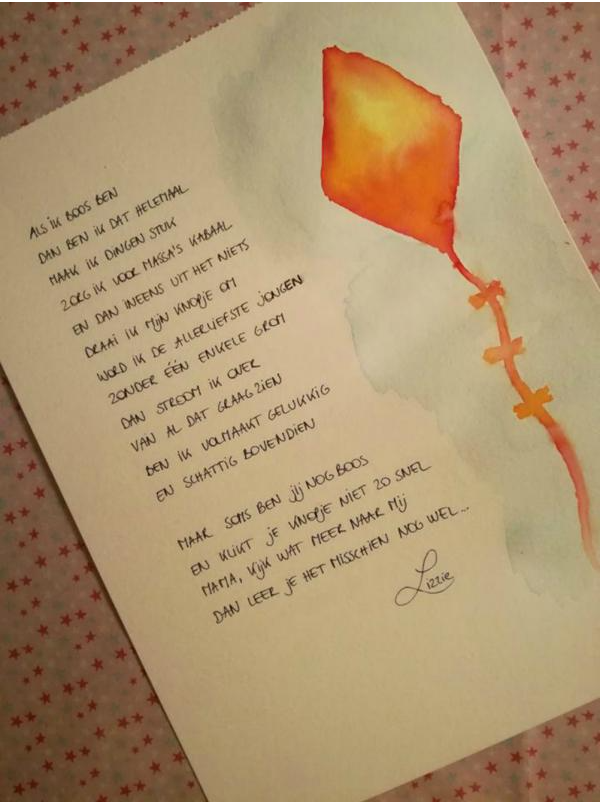 ALS IK BOOS BEN
DAN BEN IK DAT HELEMAAL
MAAK IK DINGEN STUK
ZORG IK VOOR MASSA'S KABAAL
EN DAN INEENS UIT HET NIETS
DRAAI IK MIJN KNOPJE OM
WORD IK DE ALLERLIEFSTE JONGEN
ZONDER ÉÉN ENKELE GROM
DAN STROOM IK OVER
VAN AL DAT GRAAG ZIEN
BEN IK VOLMAAKT GELUKKIG
EN SCHATTIG BOVENDIEN
MAAR SOMS BEN JIJ NOG BOOS
EN KLIKT JE KNOPJE NIET ZO SNEL
MAMA, KIJK WAT MEER NAAR MIJ
DAN LEER JE HET MISSCHIEN NOG WEL...
Lizzie